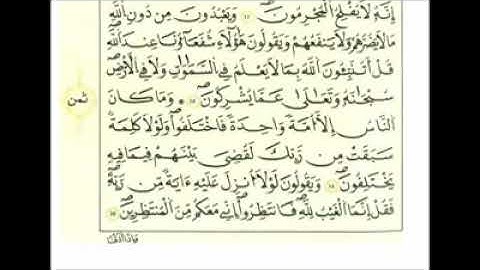 إِنَّهُۥ لَا يُفْلِحُ الْمُجْرِمُونَ وَيَعْبُدُونَ مِن دُونِ اللَّهِ
مَا لَا يَضُرُّهُمْ وَلَا يَنفَعُهُمْ وَيَقُولُونَ هَٰؤُلَاءِ شُفَعَٰؤُنَا عِندَ اللَّهِ
قُلْ أَتُنَبِّـُٔونَ اللَّهَ بِمَا لَا يَعْلَمُ فِي السَّمَٰوَٰتِ وَلَا فِي الْأَرْضِ
ثمن
سُبْحَٰنَهُۥ وَتَعَٰلَىٰ عَمَّا يُشْرِكُونَ وَمَا كَانَ
النَّاسُ إِلَّا أُمَّةً وَٰحِدَةً فَاخْتَلَفُوا وَلَوْلَا كَلِمَةٌ
سَبَقَتْ مِن رَّبِّكَ لَقُضِيَ بَيْنَهُمْ فِيمَا فِيهِ
يَخْتَلِفُونَ وَيَقُولُونَ لَوْلَا أُنزِلَ عَلَيْهِ ءَايَةٌ مِّن رَّبِّهِ
فَقُلْ إِنَّمَا الْغَيْبُ لِلَّهِ فَانتَظِرُوا إِنِّي مَعَكُم مِّنَ الْمُنتَظِرِينَ
وَإِذَا أَذَقْنَا